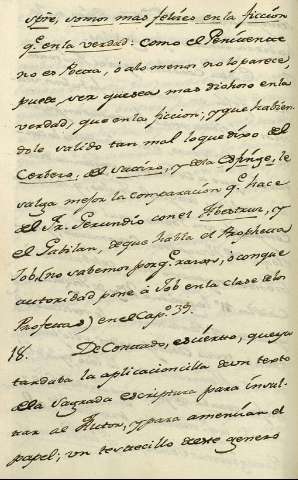 spre, somos mas felizes en la ficcion
q.e en la verdad: como el Penitente
no es Poeta, ó alo menos no lo parece,
puede ser que sea mas dichoso en la
verdad, que en la ficcion; y que habien
dole valido tan mal lo que dixo del
Cerbero, del Satiro, y dela Esfinge, le
valga mejor la comparación q.e hace
del Fr. Gerundio con el Abestruz, y
el Gabilan, de que habla el Propheta
Job, (no sabemos por q.e razon, ó con que
autoridad pone á Job en la clase de los
Profetas) en el Cap.o 39.
18. De Contado, es cierto, que ya
tardaba la aplicacioncilla de un texto
dela Sagrada escriptura para insul-
tar al Autor, y para amenizar el
papel; un textecillo de este genero